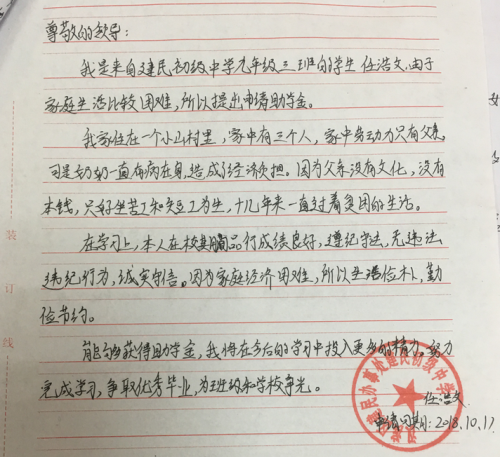 尊敬的领导：
我是来自建民初级中学九年级三班的学生任浩文，由于
家庭生活比较困难，所以提出申请助学金。
我家住在一个小山村里，家中有三个人，家中劳动力只有父亲，
可是奶奶一直有病在身，造成了经济负担。因为父亲没有文化，没有
本钱，只好坐苦工和短工为生，十几年来一直过着贫困的生活。
在学习上，本人在校期间品行成绩良好，遵纪守法，无违法
违纪行为，诚实守信。因为家庭经济困难，所以生活俭朴，勤
俭节约。
能够获得助学金，我将在今后的学习中投入更多的精力，努力
完成学习，争取优秀毕业，为班级和学校争光。
任浩文
申请日期：2018.10.17
建民办事处建民初级中学
装
订
线